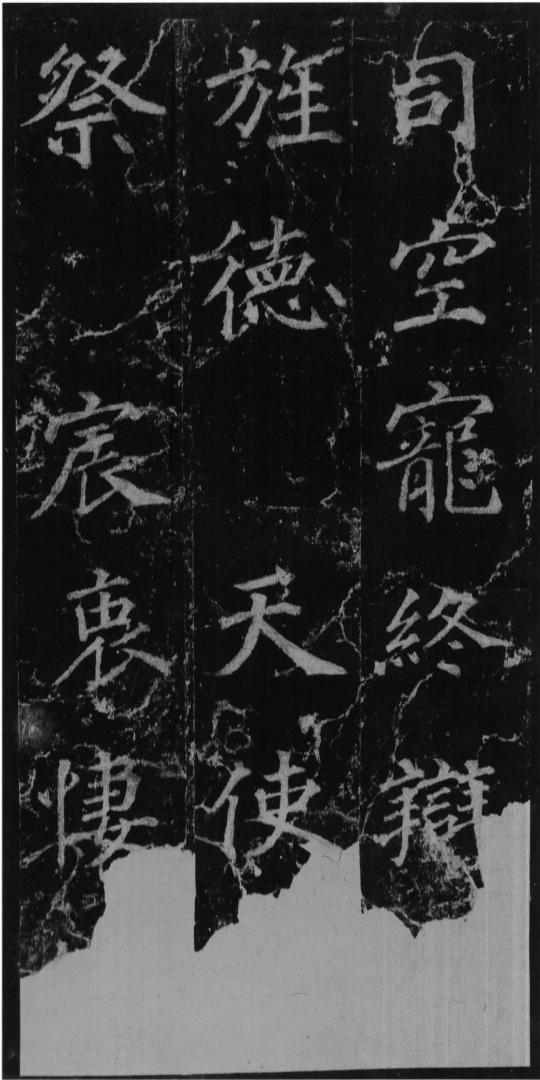 司空寵終辯
旌德天使
祭宸衷悽